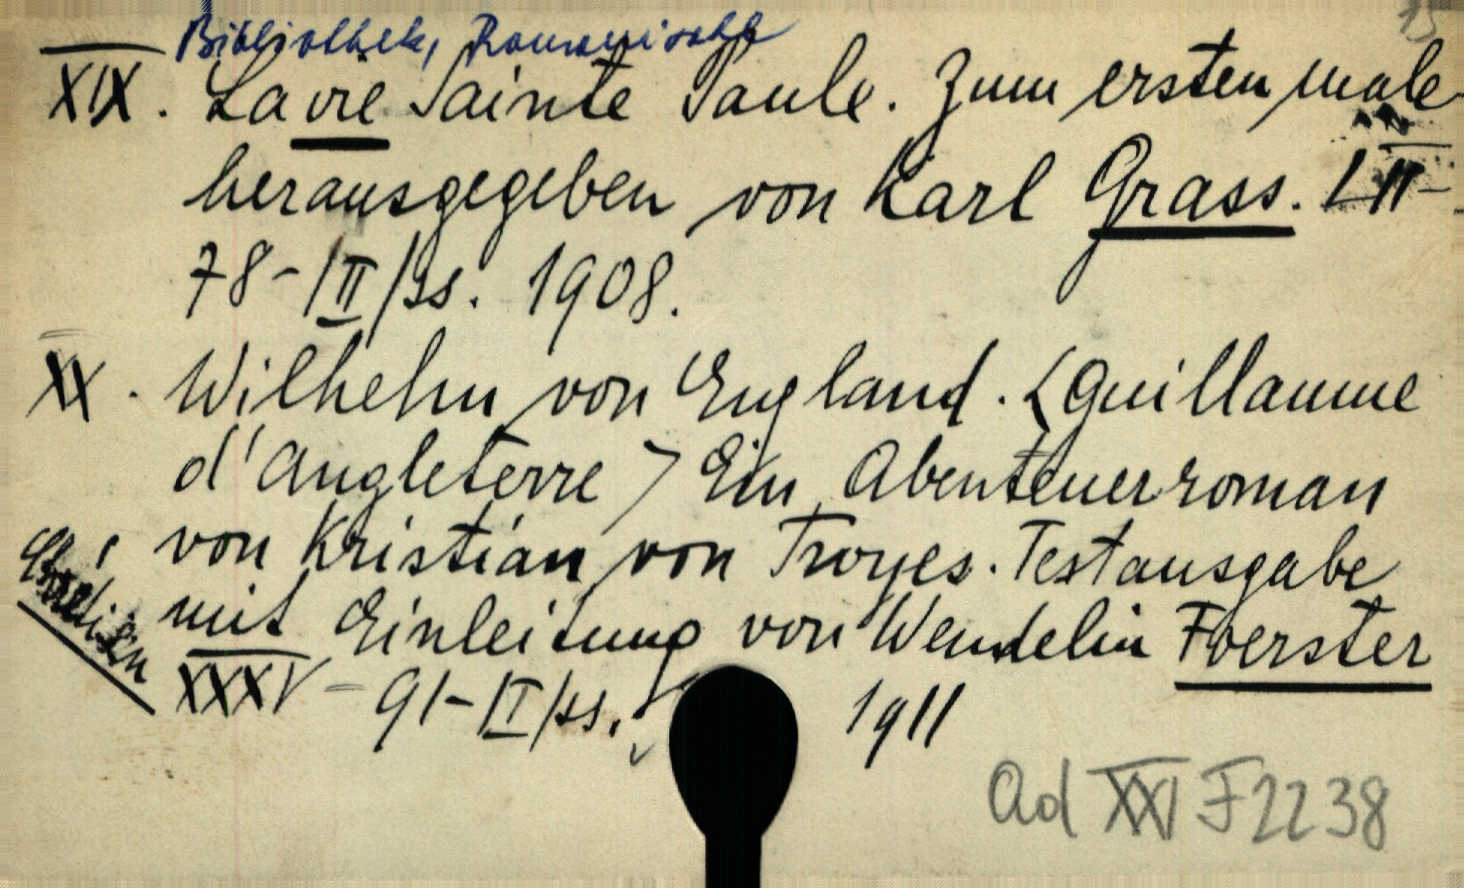 15
Bibliothek, Romanische
XIX. La vie Sainte Paule. Zum ersten male
herausgegeben von Karl Grass. LII-
78-/II/ss. 1908.
XX. Wilhelm von England. <Guillaume
d'Angleterre> Ein Abenteuerroman
von Kristian von Troyes. Testausgabe
mit Einleitung von Wendelin Foerster
XXXV-91-/I/ss. 1911
Ad XXI F2238